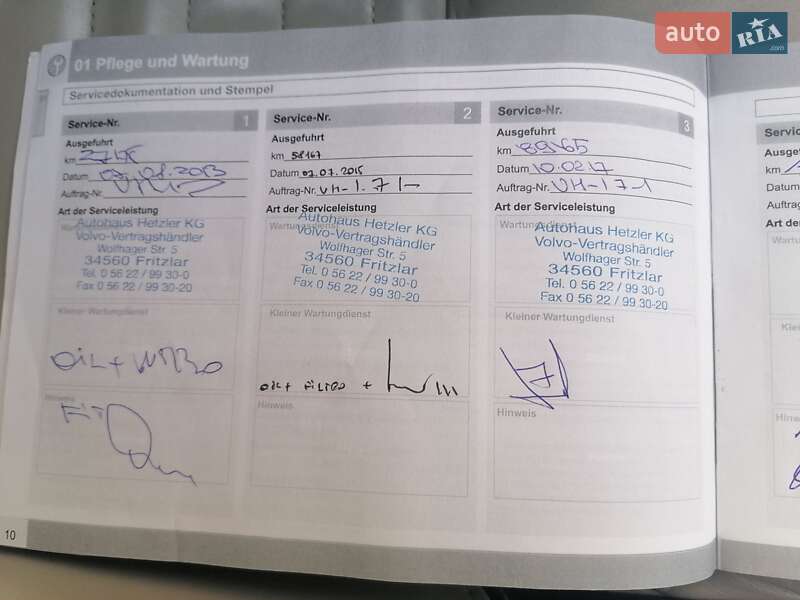 auto RIA .com
01 Pflege und Wartung
Servicedokumentation und Stempel
Service-Nr. 1
Ausgeführt
km
Datum 07.08.2013
Auftrag-Nr.
Art der Serviceleistung
Autohaus Hetzler KG
Volvo-Vertragshändler
Wolfhager Str. 5
34560 Fritzlar
Tel. 0 56 22 / 99 30-0
Fax 0 56 22 / 99 30-20
Kleiner Wartungdienst
OIL +
Hinweis
Service-Nr. 2
Ausgeführt
km 58167
Datum 07.07.2015
Auftrag-Nr. VH-1.71-
Art der Serviceleistung
Wartungsdienst
Autohaus Hetzler KG
Volvo-Vertragshändler
Wolfhager Str. 5
34560 Fritzlar
Tel. 0 56 22 / 99 30-0
Fax 0 56 22 / 99 30-20
Kleiner Wartungdienst
OIL + FILTRO +
Hinweis
Service-Nr. 3
Ausgeführt
km 89165
Datum 10.02.17
Auftrag-Nr. VH-171
Art der Serviceleistung
Autohaus Hetzler KG
Volvo-Vertragshändler
Wolfhager Str. 5
34560 Fritzlar
Tel. 0 56 22 / 99 30-0
Fax 0 56 22 / 99 30-20
Kleiner Wartungdienst
Hinweis
10
km
Datum